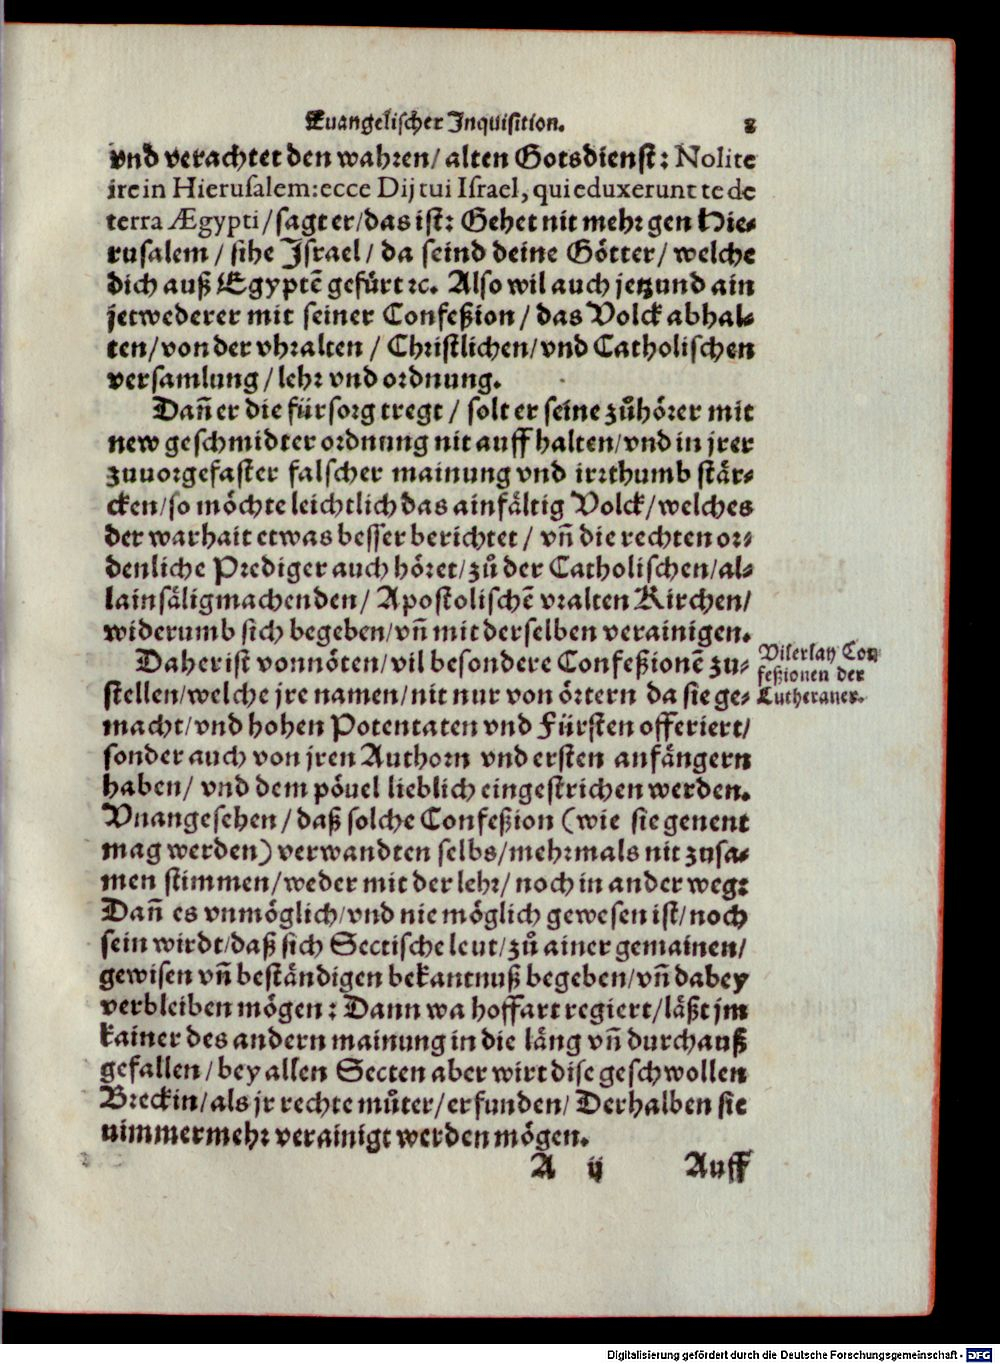 Euangelischer Inquisition. 2
vnd verachtet den wahren/ alten Gotsdienst: Nolite
ire in Hierusalem: ecce Dij tui Israel, qui eduxerunt te de
terra Ægypti/ sagt er/ das ist: Gehet nit mehr gen Hie-
rusalem / sihe Israel / da seind deine Götter/ welche
dich auß Egyptē gefürt ꝛc. Also wil auch jetzund ain
jetwederer mit seiner Confeßion / das Volck abhal-
ten/ von der vhralten / Christlichen/ vnd Catholischen
versamlung / lehr vnd ordnung.
Dañ er die fürsorg tregt / solt er seine zůhörer mit
new geschmidter ordnung nit auffhalten/ vnd in jrer
zuuorgefaster falscher mainung vnd irrthumb stär-
cken/ so möchte leichtlich das ainfältig Volck/ welches
der warhait etwas besser berichtet / vñ die rechten or-
denliche Prediger auch höret/ zů der Catholischen/ al-
lain säligmachenden/ Apostolischē vralten Kirchen/
widerumb sich begeben/ vñ mit derselben verainigen.
Daher ist vonnöten/ vil besondere Confeßionē zu-
stellen/ welche jre namen/ nit nur von örtern da sie ge-
macht/ vnd hohen Potentaten vnd Fürsten offeriert/
sonder auch von jren Authorn vnd ersten anfängern
haben/ vnd dem pöuel lieblich eingestrichen werden.
Vnangesehen / daß solche Confeßion (wie sie genent
mag werden) verwandten selbs/ mehrmals nit zusa-
men stimmen/ weder mit der lehr/ noch in ander weg:
Dañ es vnmöglich/ vnd nie möglich gewesen ist/ noch
sein wirdt/ daß sich Sectische leut/ zů ainer gemainen/
gewisen vñ beständigen bekantnuß begeben/ vñ dabey
verbleiben mögen: Dann wa hoffart regiert/ läßt jm
kainer des andern mainung in die läng vñ durchauß
gefallen / bey allen Secten aber wirt dise geschwollen
Breckin/ als jr rechte můter/ erfunden/ Derhalben sie
nimmermehr verainigt werden mögen.
A ij Auff
Vilerlay Con-
feßionen der
Lutheraner.
Digitalisierung gefördert durch die Deutsche Forschungsgemeinschaft - DFG